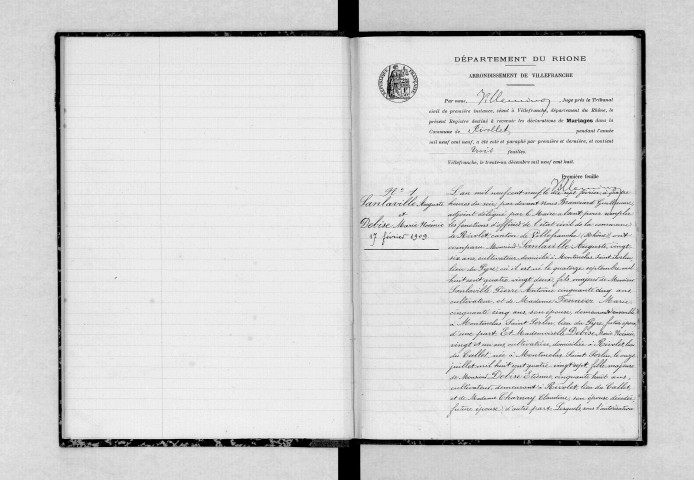 DÉPARTEMENT DU RHONE
ARRONDISSEMENT DE VILLEFRANCHE
Par nous, Juge près le Tribunal
civil de première instance, séant à Villefranche, département du Rhône, le
présent Registre destiné à recevoir les déclarations de Mariages dans la
Commune de Rivolet, pendant l'année
mil neuf cent neuf, a été coté et paraphé par première et dernière, et contient
trois feuilles.
Villefranche, le trente-un décembre mil neuf cent huit.
Première feuille
N° 1
Sanlaville Auguste
et
Debise Marie Noémie
17 février 1909
L'an mil neuf cent neuf le dix sept février, à quatre
heures du soir, par devant Nous Guillaume,
adjoint délégué par le Maire pour remplir
les fonctions d'officier de l'état civil de la commune
de Rivolet, canton de Villefranche, Rhône, ont
comparu Monsieur Sanlaville Auguste, vingt
six ans, cultivateur, domicilié à Montmelas Saint Sorlin,
lieu du où il est né le quatorze septembre mil
huit cent quatre vingt deux, fils majeur de Monsieur
Sanlaville Pierre Antoine cinquante cinq ans
cultivateur, et de Madame Marie,
cinquante cinq ans, son épouse, demeurant ensemble
à Montmelas Saint Sorlin, lieu du futur époux
d'une part. Et Mademoiselle Debise Marie Noémie
vingt et un ans, cultivatrice, domiciliée à Rivolet, lieu
du née à Montmelas Saint Sorlin, le onze
juillet mil huit cent quatre vingt sept, fille majeure
de Monsieur Debise Etienne, cinquante huit ans,
cultivateur, demeurant à Rivolet, lieu du
et de Madame Charnay Claudine, son épouse décédée
future épouse, d'autre part. Lesquels, sous l'autorisation